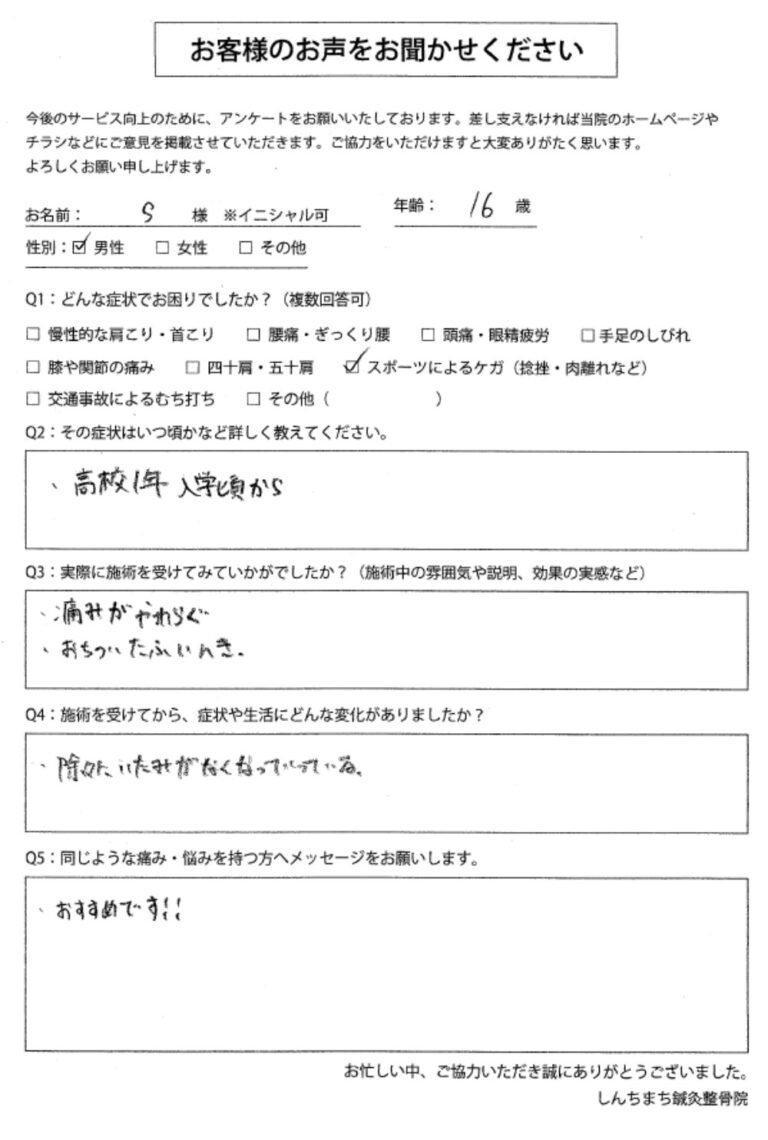 お客様のお声をお聞かせください
今後のサービス向上のために、アンケートをお願いいたしております。差し支えなければ当院のホームページや
チラシなどにご意見を掲載させていただきます。ご協力をいただけますと大変ありがたく思います。
よろしくお願い申し上げます。
お名前： S 様 ※イニシャル可 年齢： 16 歳
性別：☑ 男性 □ 女性 □ その他
Q1：どんな症状でお困りでしたか？（複数回答可）
□ 慢性的な肩こり・首こり □ 腰痛・ぎっくり腰 □ 頭痛・眼精疲労 □ 手足のしびれ
□ 膝や関節の痛み □ 四十肩・五十肩 ☑ スポーツによるケガ（捻挫・肉離れなど）
□ 交通事故によるむち打ち □ その他（ ）
Q2：その症状はいつ頃かなど詳しく教えてください。
、高校1年 入学頃から
Q3：実際に施術を受けてみていかがでしたか？（施術中の雰囲気や説明、効果の実感など）
、痛みがやわらぐ
、おちついたふいんき.
Q4：施術を受けてから、症状や生活にどんな変化がありましたか？
、除々に、いたみがなくなっていっている。
Q5：同じような痛み・悩みを持つ方へメッセージをお願いします。
、おすすめです!!
お忙しい中、ご協力いただき誠にありがとうございました。
しんちまち鍼灸整骨院